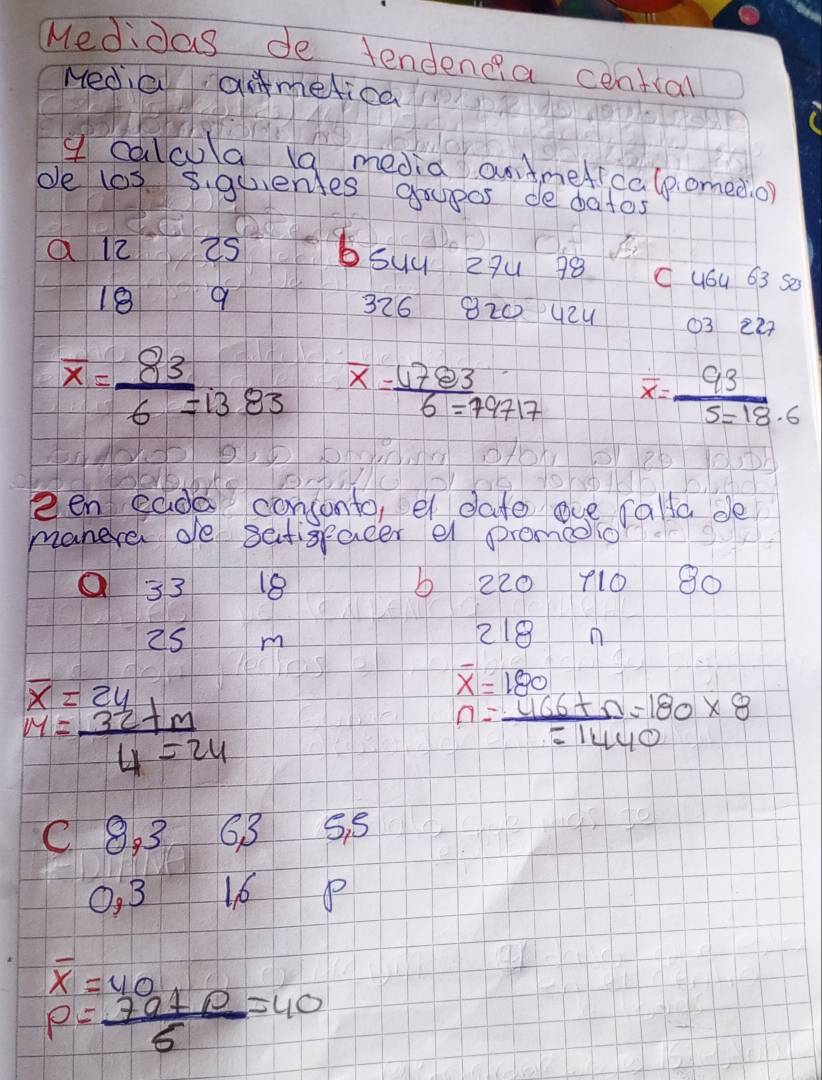 Medidas de tendencia central
Media aritmetica
1 calcula la media aritmetica (promedio)
de los siguientes grupos de datos
a 12 25 b 544 274 78 c 464 63
18 9 326 820 424 03 227
x̄ = 83 / 6 = 13 83 x̄ = 4783 / 6 = 79717 x̄ = 93 / 5 = 18.6
2 en cada conjonto, el dato que falta de
manera de satisfacer el promedio
a 33 18 b 220 710 80
25 m 218 n
x̄ = 24 x̄ = 180
M = 32 + m / 4 = 24 n = 466 + n = 180 x 8
= 1440
c 8,3 6,3 5,5
0,3 1,6 p
x̄ = 40
p = 79 + p / 6 = 40